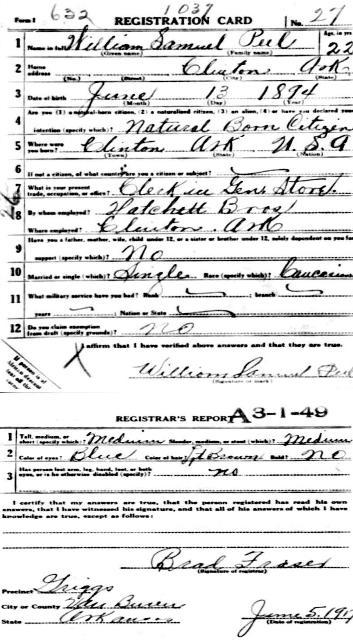 632 1037
Form 1 REGISTRATION CARD No. 27
1 Name in full William Samuel Peel Age, in yrs. 22
(Given name) (Family name)
2 Home address Clinton Ark
(No.) (Street) (City) (State)
3 Date of birth June 13 1894
(Month) (Day) (Year)
Are you (1) a natural-born citizen, (2) a naturalized citizen, (3) an alien, (4) or have you declared your
4 intention (specify which)? Natural Born Citizen
5 Where were you born? Clinton Ark U.S.A
(Town) (State) (Nation)
6 If not a citizen, of what country are you a citizen or subject?
7 What is your present trade, occupation, or office? Clerk in Genl Store
8 By whom employed? Hatchett Bros
Where employed? Clinton, Ark
Have you a father, mother, wife, child under 12, or a sister or brother under 12, solely dependent on you for
9 support (specify which)? No
10 Married or single (which)? Single Race (specify which)? Caucasian
11 What military service have you had? Rank ; branch
years ; Nation or State
12 Do you claim exemption from draft (specify grounds)? no
I affirm that I have verified above answers and that they are true.
William Samuel Peel
(Signature or mark)
If person is of African descent
REGISTRAR'S REPORT A3-1-49
1 Tall, medium, or short (specify which)? Medium Slender, medium, or stout (which)? Medium
2 Color of eyes? Blue Color of hair? Lgt Brown Bald? No
3 Has person lost arm, leg, hand, foot, or both eyes, or is he otherwise disabled (specify)? no
I certify that my answers are true, that the person registered has read his own
answers, that I have witnessed his signature, and that all of his answers of which I have
knowledge are true, except as follows:
Brad Fraser
(Signature of registrar)
Precinct Griggs
City or County Van Buren
State Arkansas June 5, 191
(Date of registration)